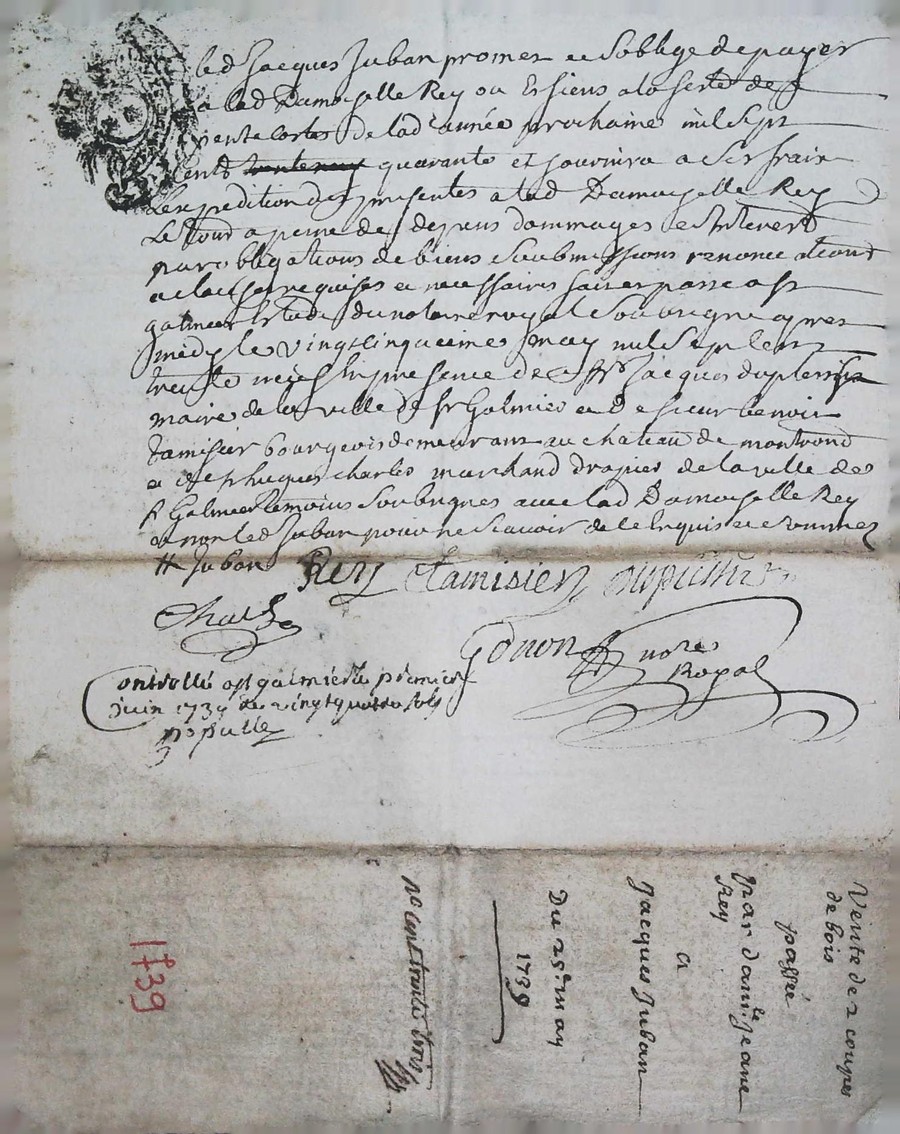 led Jacques Juban promet et soblige de payer
a lad Damoyselle Rey ou Es siens a la feste de
de lad année prochaine mil sept
cents quarante et fournira a ses frais
Lexpedition des presentes a lad Damoyselle Rey
Le tout a peine de depens dommages et Interets
par obligations de biens soubmissions renonce
requises et necessaires fait et passé a st
galmier Estude du notaire royal soubsigne apres
midy le vingt cinquieme may mil sept cent
trente neuf En presence de Jacques duplessis
maire de la ville de st Galmier et de sieur benoit
tamisier bourgeois demeurant au chateau de montrond
et de sr hugues charles marchand drapier de la ville de
st Galmier temoins soubsignes avec lad Damoyselle Rey
et non led Juban pour ne scavoir de ce Enquis et somme
Juban Rey Tamisier
Charles
Gonon nore
Royal
Controllé a st galmier le premier
Juin 1739 vingt quatre sols
Vente de 2 coupes
de bois
passée
par damlle Jeane
Rey
a
Jacques Juban
Du 25e may
1739
no cent trente trois
1739